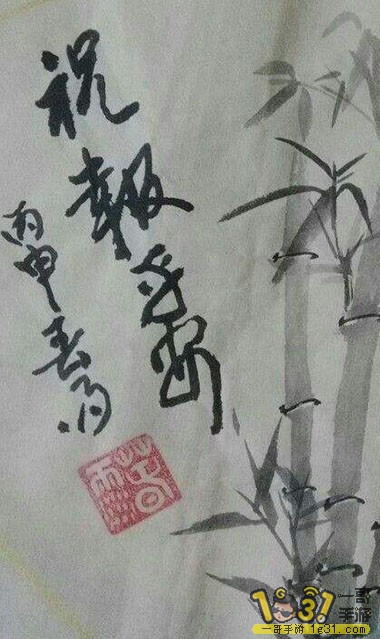 祝報平安
丙申春雨
春雨
一哥
手游
一哥手游 1g31.com